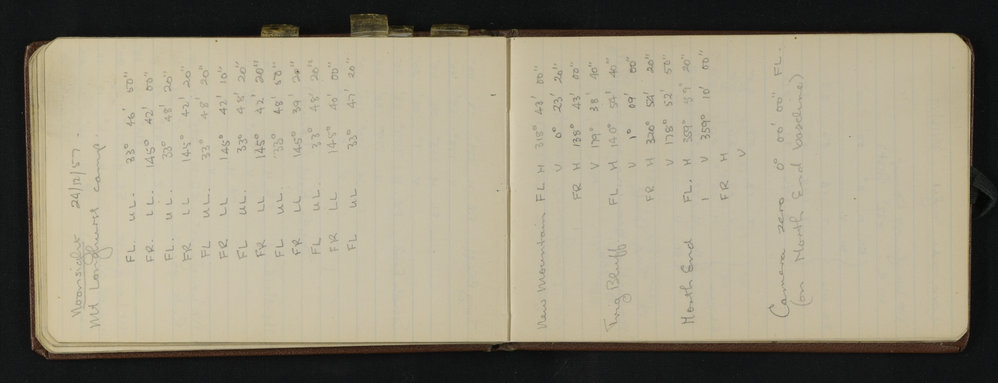 Noonsight 24/12/57.
Mt Longhurst camp.
FL. UL. 33° 46' 50"
FR. LL. 145° 42' 00"
FL. UL. 33° 48' 20"
FR LL 145° 42' 20"
FL UL. 33° 48' 20"
FR LL 145° 42' 10"
FL UL. 33° 48' 20"
FR LL 145° 42' 20"
FL UL. 33° 48' 50"
FR LL 145° 39' 20"
FL UL. 33° 48' 20"
FR LL 145° 40' 00"
FL UL 33° 47' 20"
New Mountain FL H 318° 43' 00"
V 0° 23' 20"
FR H 138° 43' 00"
V 179° 38' 40"
Trig Bluff FL. H 140° 54' 40"
V 1° 09' 00"
FR H 320° 54' 20"
V 178° 52' 50"
North End FL. H 359° 59' 20"
V 359° 10' 00"
FR H
V
Camera zero 0° 00' 00" FL.
(on North End baseline)